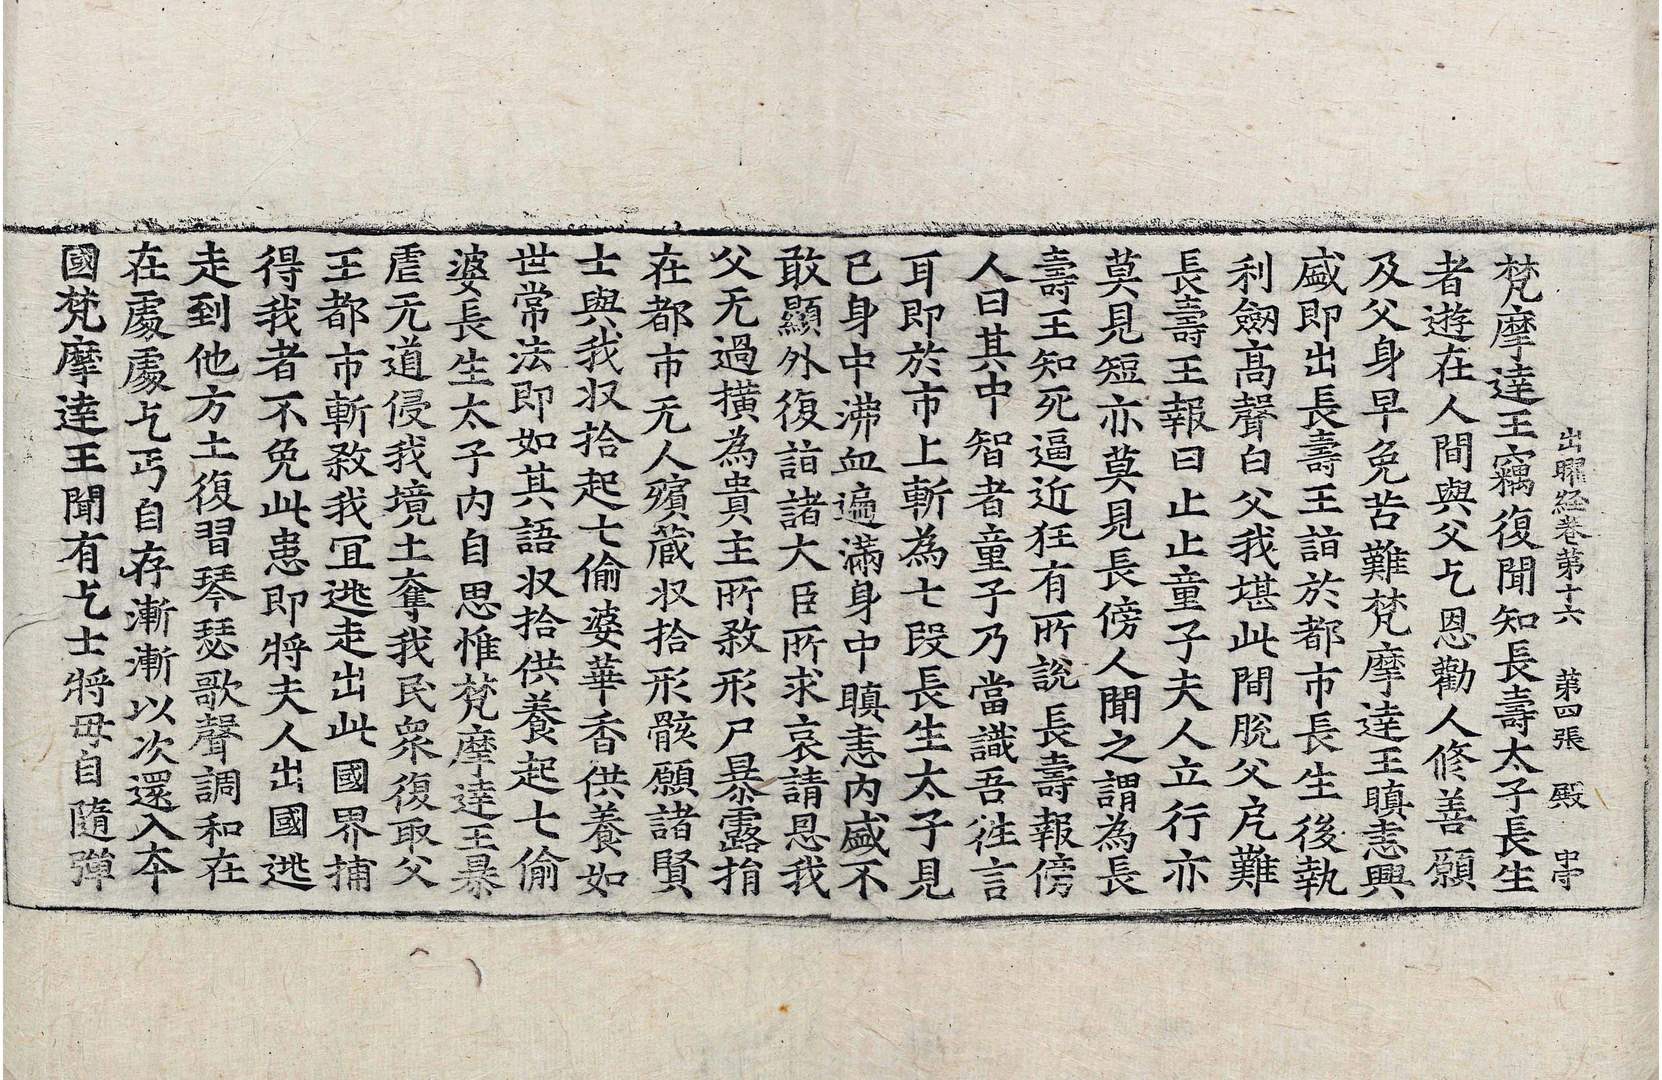 出曜経卷第十六 第四張 殿 中守
梵摩達王竊復聞知長壽太子長生
者遊在人間與父乞恩勸人修善願
及父身早免苦難梵摩達王瞋恚興
盛即出長壽王詣於都市長生後執
利劔高聲白父我堪此間脫父戹難
長壽王報曰止止童子夫人立行亦
莫見短亦莫見長傍人聞之謂為長
壽王知死逼近狂有所說長壽報傍
人曰其中智者童子乃當識吾徃言
耳即於市上斬為七段長生太子見
已身中沸血遍滿身中瞋恚內盛不
敢顯外復詣諸大臣所求哀請恩我
父无過橫為貴主所敎形尸暴露捐
在都市无人殯蔵収拾形骸願諸賢
士與我収拾起七偷婆華香供養如
世常法即如其語収拾供養起七偷
婆長生太子內自思惟梵摩達王暴
虐无道侵我境土奪我民衆復取父
王都市斬敎我冝逃走出此國界捕
得我者不免此患即將夫人出國逃
走到他方土復習琴瑟歌聲調和在
在處處乞丐自存漸漸以次還入本
國梵摩達王聞有乞士將母自隨彈